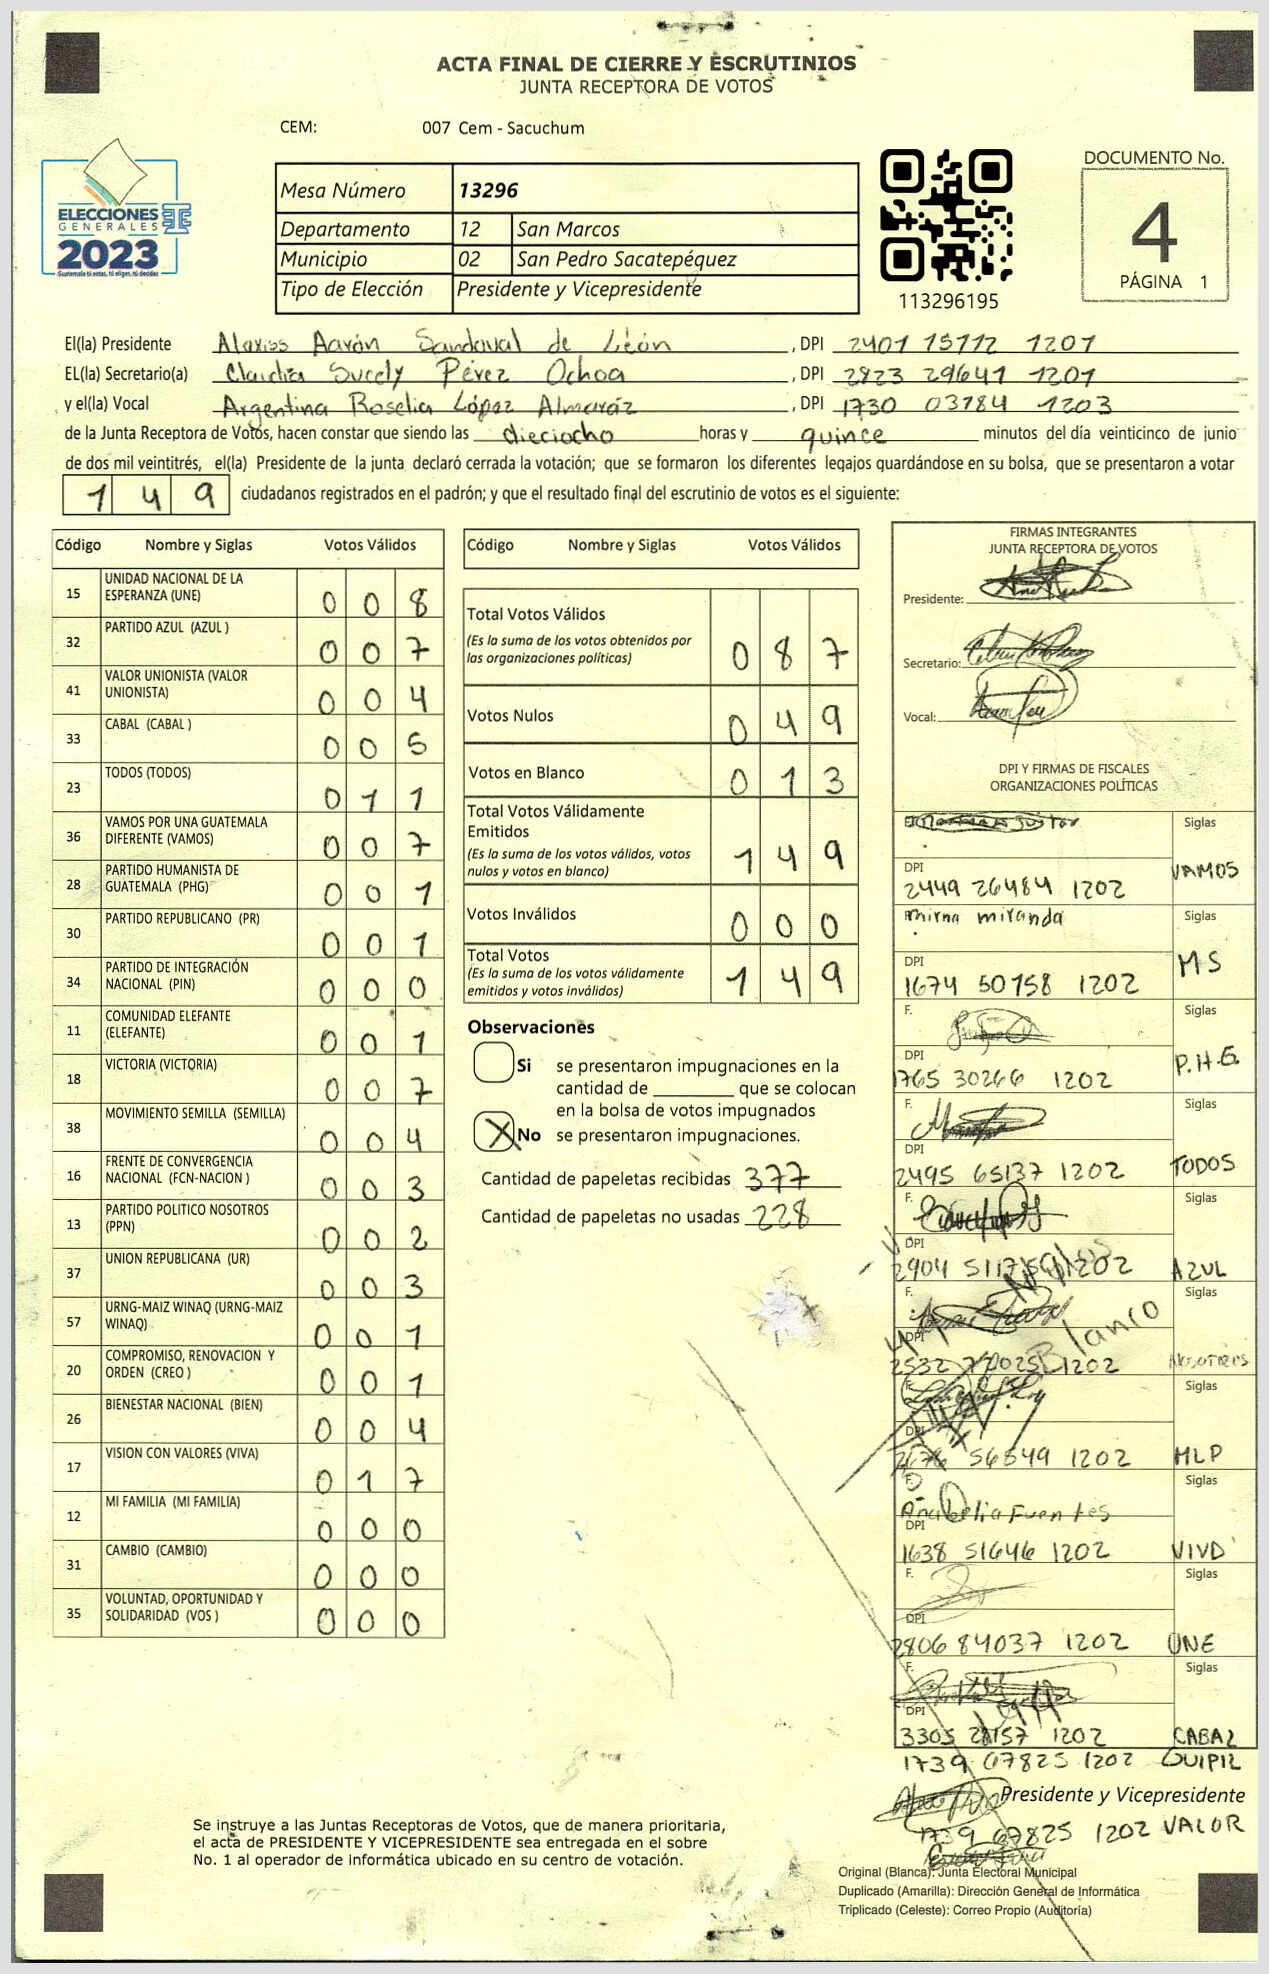 ACTA FINAL DE CIERRE Y ESCRUTINIOS
JUNTA RECEPTORA DE VOTOS
CEM: 007 Cem - Sacuchum
ELECCIONES
GENERALES
2023
Guatemala tú votas, tú eliges, tú decides
Mesa Número 13296
Departamento 12 San Marcos
Municipio 02 San Pedro Sacatepéquez
Tipo de Elección Presidente y Vicepresidente
113296195
DOCUMENTO No.
4
PÁGINA 1
El(la) Presidente Alexiss Aarón Sandoval de León , DPI 2401 15112 1201
EL(la) Secretario(a) Claudia Sucely Pérez Ochoa , DPI 2823 29641 1201
y el(la) Vocal Argentina Roselia López Almaráz , DPI 1730 03784 1203
de la Junta Receptora de Votos, hacen constar que siendo las dieciocho horas y quince minutos del día veinticinco de junio
de dos mil veintitrés, el(la) Presidente de la junta declaró cerrada la votación; que se formaron los diferentes legajos guardándose en su bolsa, que se presentaron a votar
1 4 9 ciudadanos registrados en el padrón; y que el resultado final del escrutinio de votos es el siguiente:
Código Nombre y Siglas Votos Válidos
15 UNIDAD NACIONAL DE LA ESPERANZA (UNE) 0 0 8
32 PARTIDO AZUL (AZUL ) 0 0 7
41 VALOR UNIONISTA (VALOR UNIONISTA) 0 0 4
33 CABAL (CABAL ) 0 0 5
23 TODOS (TODOS) 0 1 1
36 VAMOS POR UNA GUATEMALA DIFERENTE (VAMOS) 0 0 7
28 PARTIDO HUMANISTA DE GUATEMALA (PHG) 0 0 1
30 PARTIDO REPUBLICANO (PR) 0 0 1
34 PARTIDO DE INTEGRACIÓN NACIONAL (PIN) 0 0 0
11 COMUNIDAD ELEFANTE (ELEFANTE) 0 0 1
18 VICTORIA (VICTORIA) 0 0 7
38 MOVIMIENTO SEMILLA (SEMILLA) 0 0 4
16 FRENTE DE CONVERGENCIA NACIONAL (FCN-NACION ) 0 0 3
13 PARTIDO POLITICO NOSOTROS (PPN) 0 0 2
37 UNION REPUBLICANA (UR) 0 0 3
57 URNG-MAIZ WINAQ (URNG-MAIZ WINAQ) 0 0 1
20 COMPROMISO, RENOVACION Y ORDEN (CREO ) 0 0 1
26 BIENESTAR NACIONAL (BIEN) 0 0 4
17 VISION CON VALORES (VIVA) 0 1 7
12 MI FAMILIA (MI FAMILIA) 0 0 0
31 CAMBIO (CAMBIO) 0 0 0
35 VOLUNTAD, OPORTUNIDAD Y SOLIDARIDAD (VOS ) 0 0 0
Código Nombre y Siglas Votos Válidos
Total Votos Válidos 0 8 7
(Es la suma de los votos obtenidos por
las organizaciones políticas)
Votos Nulos 0 4 9
Votos en Blanco 0 1 3
Total Votos Válidamente
Emitidos
(Es la suma de los votos válidos, votos
nulos y votos en blanco) 1 4 9
Votos Inválidos 0 0 0
Total Votos
(Es la suma de los votos válidamente
emitidos y votos inválidos) 1 4 9
Observaciones
Si se presentaron impugnaciones en la
cantidad de ________ que se colocan
en la bolsa de votos impugnados
X No se presentaron impugnaciones.
Cantidad de papeletas recibidas 377
Cantidad de papeletas no usadas 228
FIRMAS INTEGRANTES
JUNTA RECEPTORA DE VOTOS
Presidente:
Secretario:
Vocal:
DPI Y FIRMAS DE FISCALES
ORGANIZACIONES POLÍTICAS
Siglas
DPI
2449 26484 1202 VAMOS
Mirna miranda Siglas
DPI
1674 50758 1202 MS
F. Siglas
DPI
1765 30266 1202 P.H.G.
F. Siglas
DPI
2495 65137 1202 TODOS
F. Siglas
DPI
2904 1202 AZUL
F. Siglas
Nulos
Blanco
DPI
2532 1202 NOSOTROS
F. Siglas
DPI
56549 1202 MLP
F. Siglas
Anabelia Fuentes
DPI
1638 51646 1202 VIVA
F. Siglas
DPI
2806 84037 1202 UNE
F. Siglas
DPI
3305 1202 CABAL
1739 67825 1202 QUIPIL
Presidente y Vicepresidente
1739 67825 1202 VALOR
Se instruye a las Juntas Receptoras de Votos, que de manera prioritaria,
el acta de PRESIDENTE Y VICEPRESIDENTE sea entregada en el sobre
No. 1 al operador de informática ubicado en su centro de votación.
Original (Blanca): Junta Electoral Municipal
Duplicado (Amarilla): Dirección General de Informática
Triplicado (Celeste): Correo Propio (Auditoría)